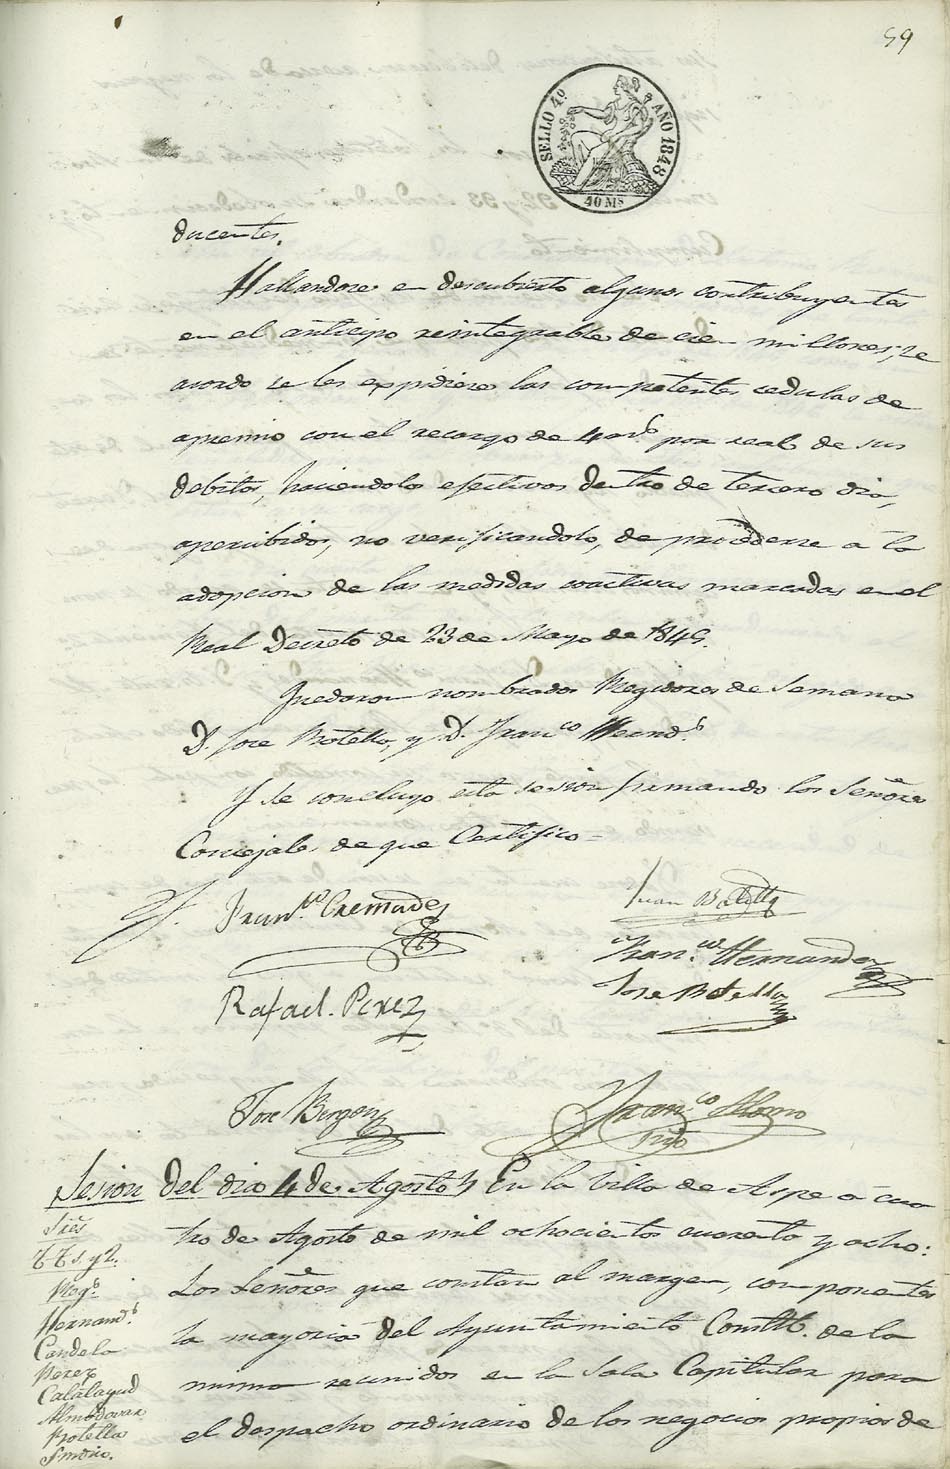 59
SELLO 4º AÑO 1848
40 Ms
ducentes.
Hallandose en descubierto algunos contribuyentes
en el anticipo reintegrable de cien millones, se
acordo se les expidiese las competentes cedulas de
apremio con el recargo de 4 mrs por real de sus
debitos, haciendolos efectivos dentro de tercero dia,
apercibidos, no verificandolo, de procederse a la
adopcion de las medidas coactivas marcadas en el
Real Decreto de 23 de Mayo de 1845.
Quedaron nombrados Regidores de Semana
D. Jose Botella, y D. Franco Hernz.
Y se concluyo esta sesion firmando los Señores
Concejales de que Certifico =
Franco Cremades
Juan Botella
Franco Hernandez
Rafael Perez
Jose Botella
Jose Bergon
Franco Alono
Srio
Sesion del dia 4 de Agosto
En la Villa de Aspe a cua
tro de Agosto de mil ochocientos cuarenta y ocho:
Los Señores que constan al margen, componentes
la mayoria del Ayuntamiento Constl. de la
misma reunidos en la Sala Capitular para
el despacho ordinario de los negocios propios de
Sres
TTs. 1 y 2.
Regs
Hernands
Candela
Perez
Calatayud
Almodovar
Botella